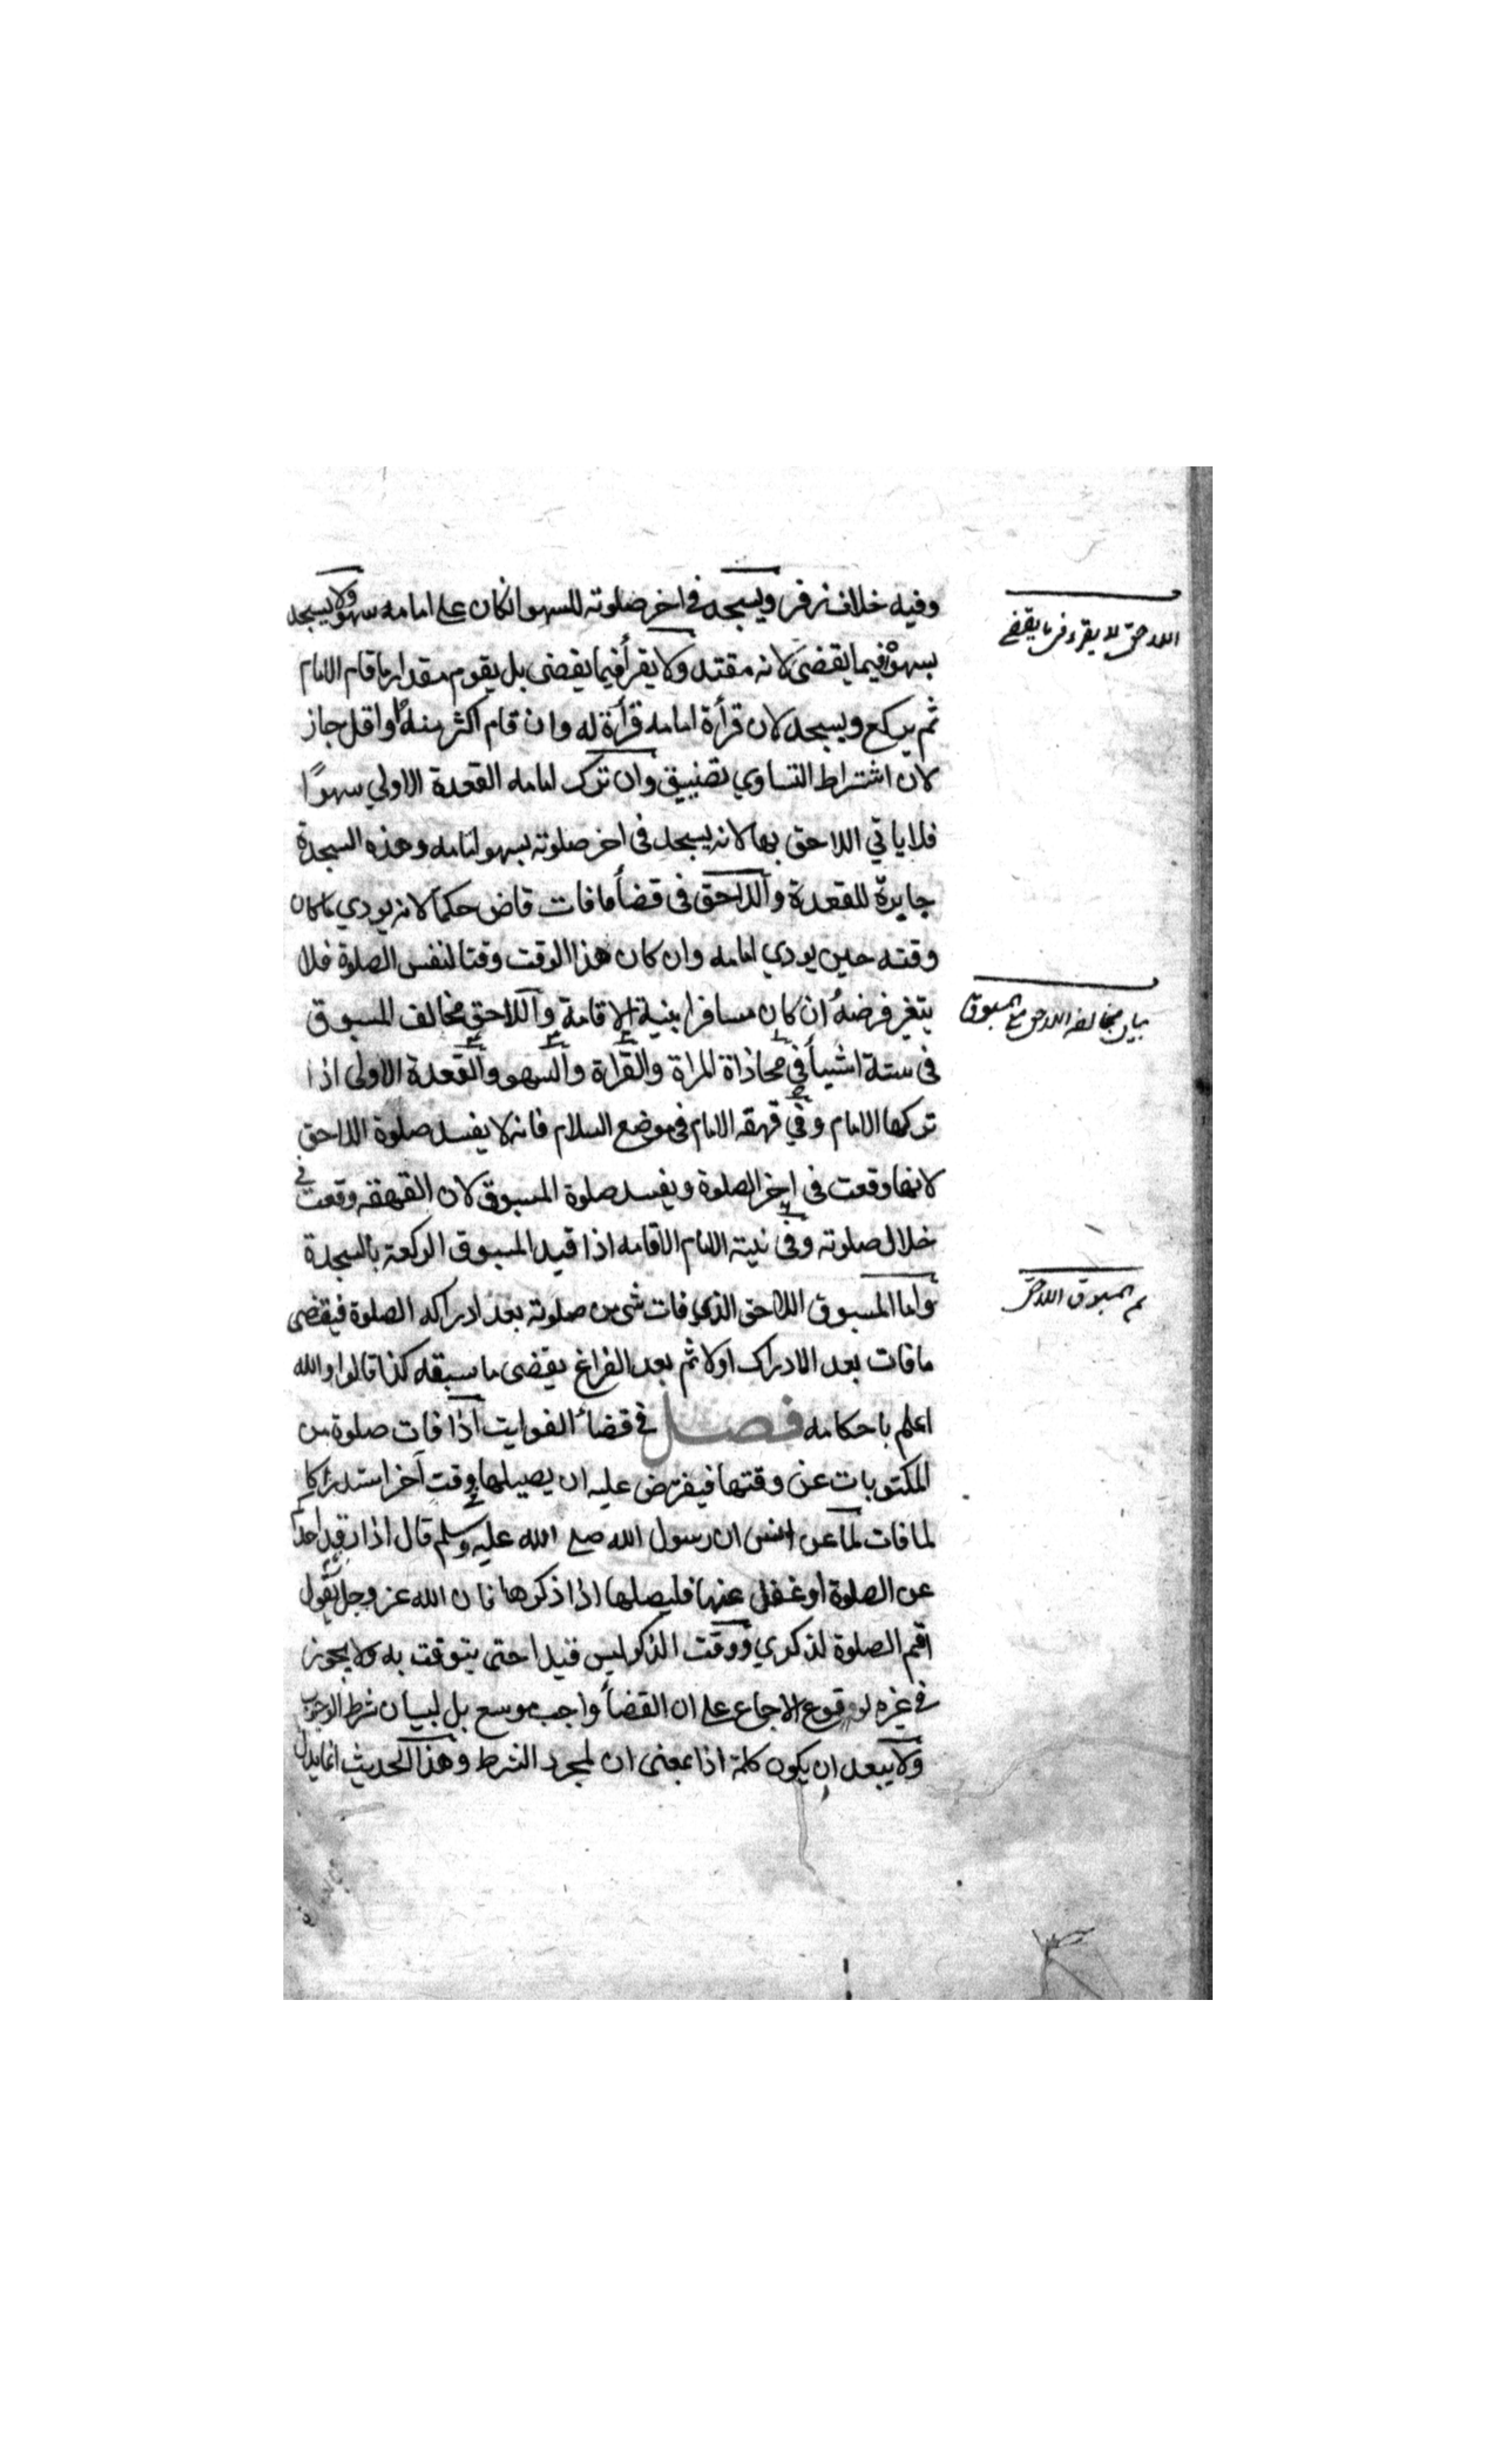 وفيه خلاف زفر ويسجد في اخر صلوته للسهو انكان على امامه سهو ولا يسجد
بسهوه فيما يقضى لانه مقتد ولا يقرأ فيما يقضى بل يقوم مقدار ما قام الامام
ثم يركع ويسجد لان قرأة امامه قرأة له وان قام اكثر منه او اقل جاز
لان اشتراط التساوي تضييق وان ترك امامه القعدة الاولي سهوًا
فلا ياتي اللاحق بها لانه يسجد في اخر صلوته بسهو امامه وهذه السجدة
جابرة للقعدة واللاحق في قضأ ما فات قاض حكما لانه يودي ما كان
وقته حين يودي امامه وان كان هذا الوقت وقتا لنفس الصلوة فلا
يتغير فرضه ان كان مسافرا بنية الاقامة واللاحق مخالف للمسبوق
في ستة اشيأ في محاذاة المراة والقرأة والسهو والقعدة الاولى اذا
تركها الامام وفي قهقه الامام في موضع السلام فانه لا يفسد صلوة اللاحق
لانها وقعت في اخر الصلوة ويفسد صلوة المسبوق لان القهقهه وقعت في
خلال صلوته وفي نية الامام الاقامه اذا قيد المسبوق الركعة بالسجدة
واما المسبوق اللاحق الذي فات شي من صلوته بعد ادراكه الصلوة فيقضى
ما فات بعد الادراك اولا ثم بعد الفراغ يقضى ما سبقه كذا قالوا والله
اعلم باحكامه فصل في قضأ الفوايت اذا فات صلوة من
المكتوبات عن وقتها فيفترض عليه ان يصيلها في وقت آخر استدراكا
لما فات لما عن انس ان رسول الله صلع الله عليه وسلم قال اذا رقد احدكم
عن الصلوة او غفل عنها فليصلها اذا ذكرها فان الله عز وجل يقول
اقم الصلوة لذكري ووقت الذكر ليس قيدا حتى يتوقت به ولا يجوز
في غيره لوقوع الاجماع على ان القضأ واجب موسع بل لبيان شرط الوجوب
ولا يبعد ان يكون كلمة اذا بمعنى ان لمجرد الشرط وهذا الحديث انما يدل
اللاحق لا يقرء فيما يقضي
بيان مخالفة اللاحق مع المسبوق
ثم المسبوق اللاحق